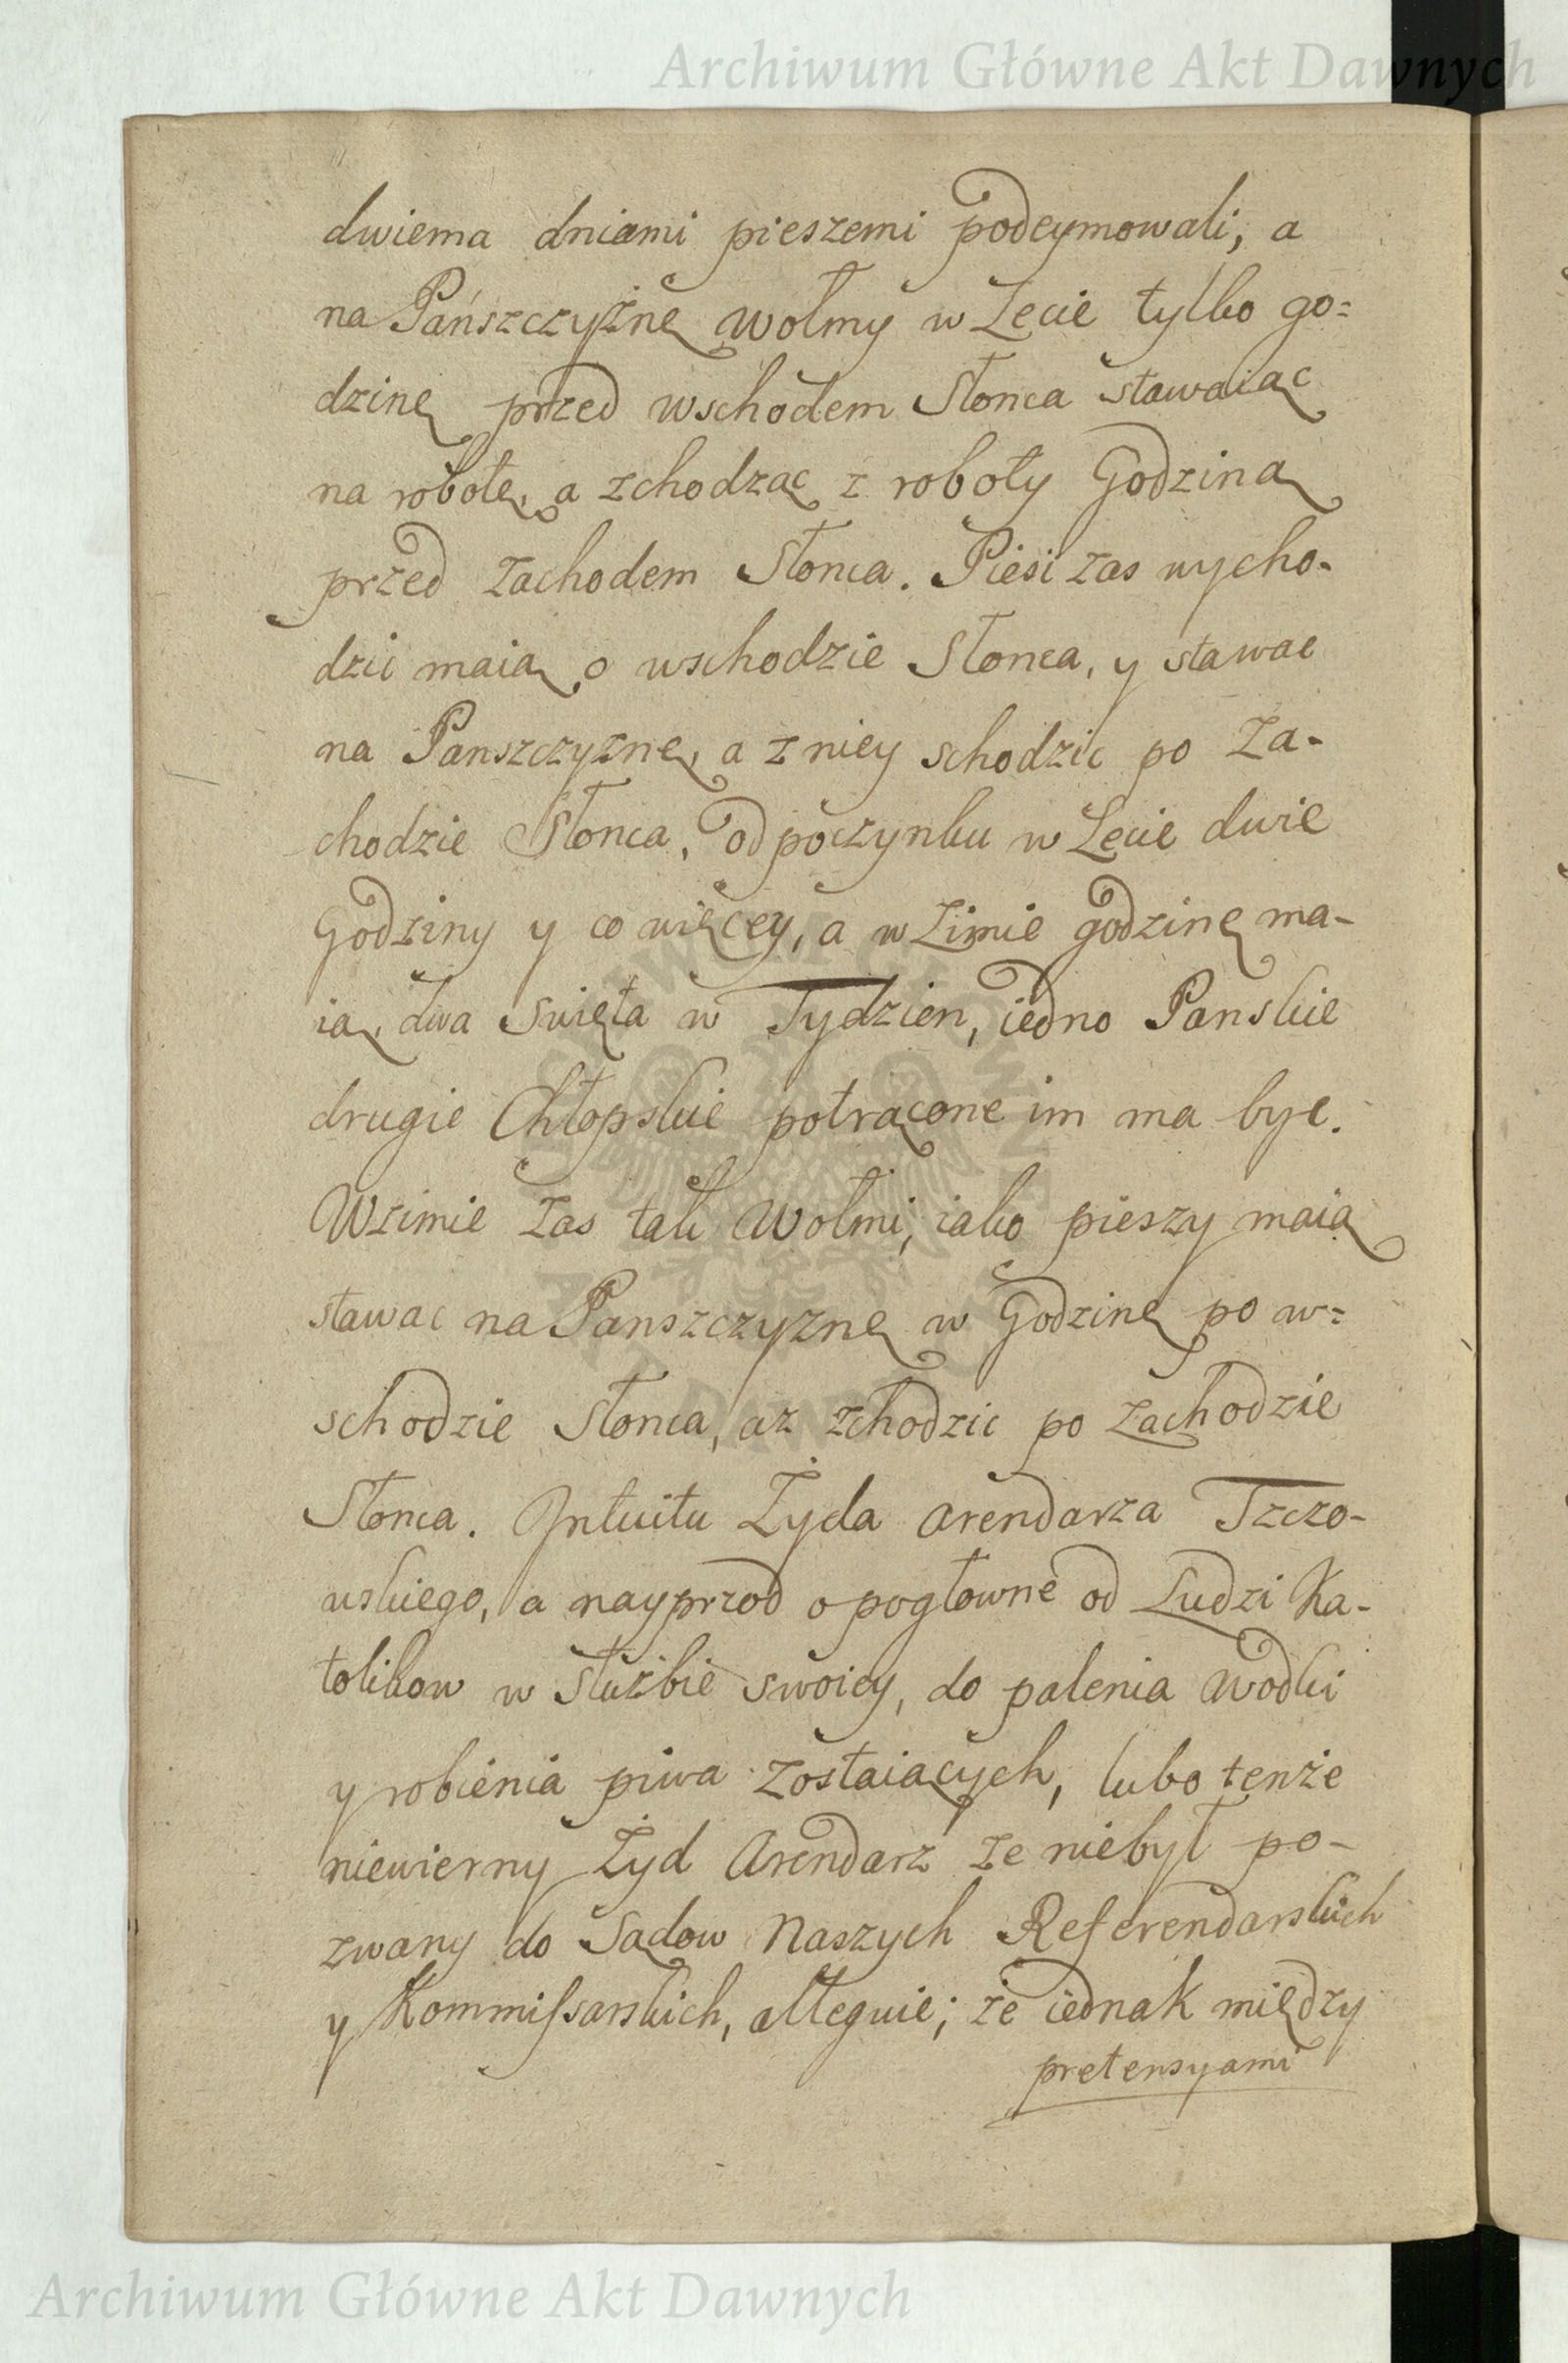 Archiwum Główne Akt Dawnych
dwiema dniami pieszemi podeymowali, a
na Pańszczyżnę wolmy w Lecie tylko go=
dzinę przed wschodem Słonca stawaiąc
na robotę, a zchodząc z roboty Godziną
przed zachodem Słonca. Piesi zas wycho-
dzic maią o wschodzie Słonca, y stawac
na Panszczyznę, a z niey schodzic po Za-
chodzie Słonca, odpoczynku w Lecie dwie
Godziny y co więcey, a w Zimie godzinę ma-
ią, dwa Swięta w Tydzien, iedno Panskie
drugie Chłopskie potrącone im ma byc.
W zimie zas tak Wołmi, iako pieszy maią
stawac na Panszczyznę w Godzinę po w=
schodzie Słonca, az zchodzic po Zachodzie
Słonca. Intuitu Żyda Arendarza Tzczo-
wskiego, a nayprzod o pogłowne od Ludzi Ka-
tolikow w Służbie swoiey, do palenia Wodki
y robienia piwa zostaiących, lubo tenże
niewierny Żyd Arendarz że niebył po-
zwany do Sądow Naszych Referendarskich
y Kommissarskich, alleguie; że iednak między
pretensyami
Archiwum Główne Akt Dawnych